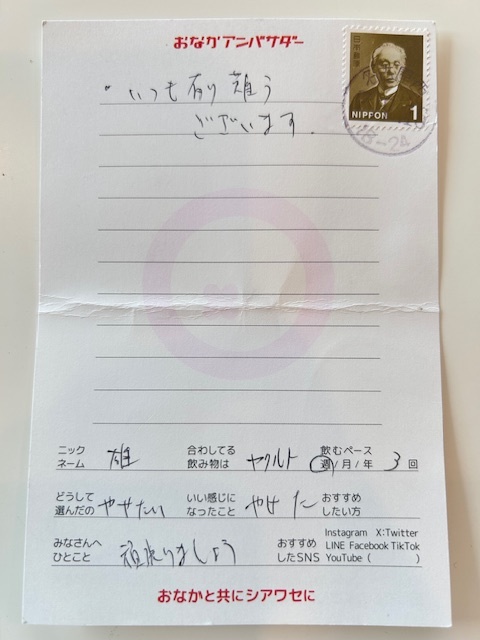 おなかアンバサダー
日本郵便
NIPPON 1
18-24
"いつも有り難う
ございます.
ニックネーム 雄 合わしてる飲み物は ヤクルト 飲むペース 週/月/年 3 回
どうして選んだの やせたい いい感じになったこと やせた おすすめしたい方
みなさんへひとこと 頑張りましょう おすすめしたSNS Instagram X:Twitter LINE Facebook TikTok YouTube ( )
おなかと共にシアワセに